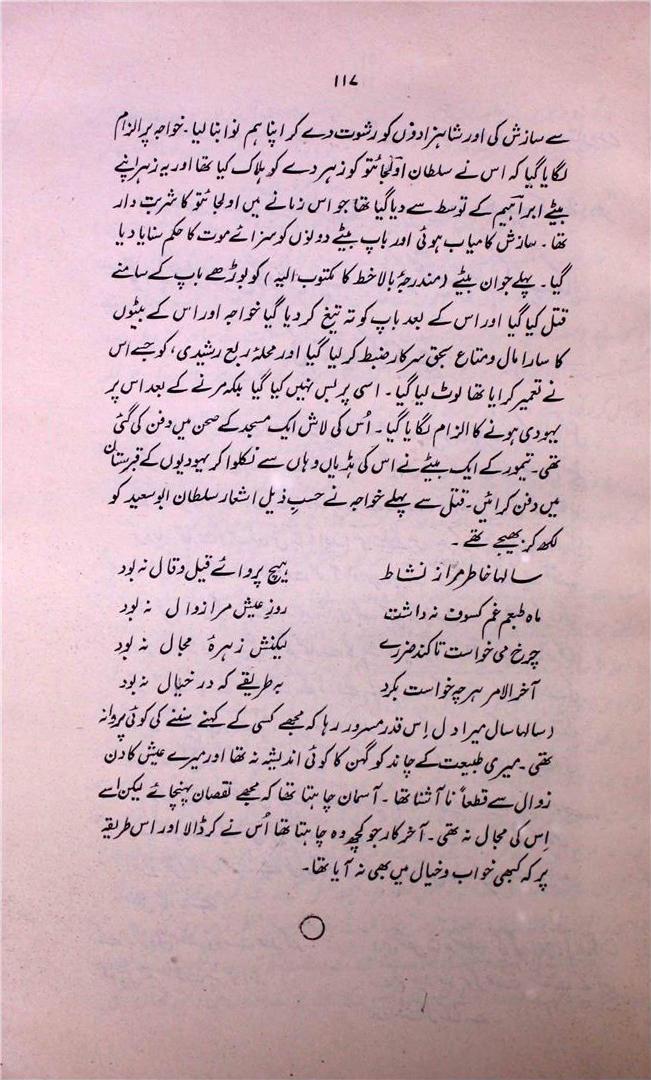 ۱۱۷
سے سازش کی اور شاہزادوں کو رشوت دے کر اپنا ہم نوا بنا لیا۔ خواجہ پر الزام
لگایا گیا کہ اس نے سلطان اولجائتو کو زہر دے کو ہلاک کیا تھا اور یہ زہر اپنے
بیٹے ابراہیم کے توسط سے دیا گیا تھا جو اس زمانے میں اولجائتو کا شربت دار
تھا۔ سازش کامیاب ہوئی اور باپ بیٹے دونوں کو سزائے موت کا حکم سنایا دیا
گیا۔ پہلے جوان بیٹے (مندرجۂ بالا خط کا مکتوب الیہ) کو بوڑھے باپ کے سامنے
قتل کیا گیا اور اس کے بعد باپ کو تہ تیغ کر دیا گیا خواجہ اور اس کے بیٹوں
کا سارا مال و متاع بحق سرکار ضبط کر لیا گیا اور محلۂ ربع رشیدی، کو جسے اس
نے تعمیر کرایا تھا لوٹ لیا گیا۔ اسی پر بس نہیں کیا گیا بلکہ مرنے کے بعد اس پر
یہودی ہونے کا الزام لگایا گیا۔ اُس کی لاش ایک مسجد کے صحن میں دفن کی گئی
تھی۔ تیمور کے ایک بیٹے نے اس کی ہڈیاں وہاں سے نکلوا کر یہودیوں کے قبرستان
میں دفن کرائیں۔ قتل سے پہلے خواجہ نے حسبِ ذیل اشعار سلطان ابو سعید کو
لکھ کر بھیجے تھے۔
سالہا خاطر مرا ز نشاط ہیچ پروائے قیل و قال نہ بود
ماہ طبعم غم کسوف نہ داشت روزِ عیش مرا زوال نہ بود
چرخ می خواست تا کند ضررے لیکنش زہرۂ مجال نہ بود
آخر الامر ہر چہ خواست بکرد بہ طریقے کہ در خیال نہ بود
(سالہا سال میرا دل اِس قدر مسرور رہا کہ مجھے کسی کے کہنے سننے کی کوئی پروا نہ
تھی۔ میری طبیعت کے چاند کو گہن کا کوئی اندیشہ نہ تھا اور میرے عیش کا دن
زوال سے قطعاً نا آشنا تھا۔ آسمان چاہتا تھا کہ مجھے نقصان پہنچائے لیکن اسے
اِس کی مجال نہ تھی۔ آخر کار جو کچھ وہ چاہتا تھا اُس نے کر ڈالا اور اس طریقہ
پر کہ کبھی خواب و خیال میں بھی نہ آیا تھا۔